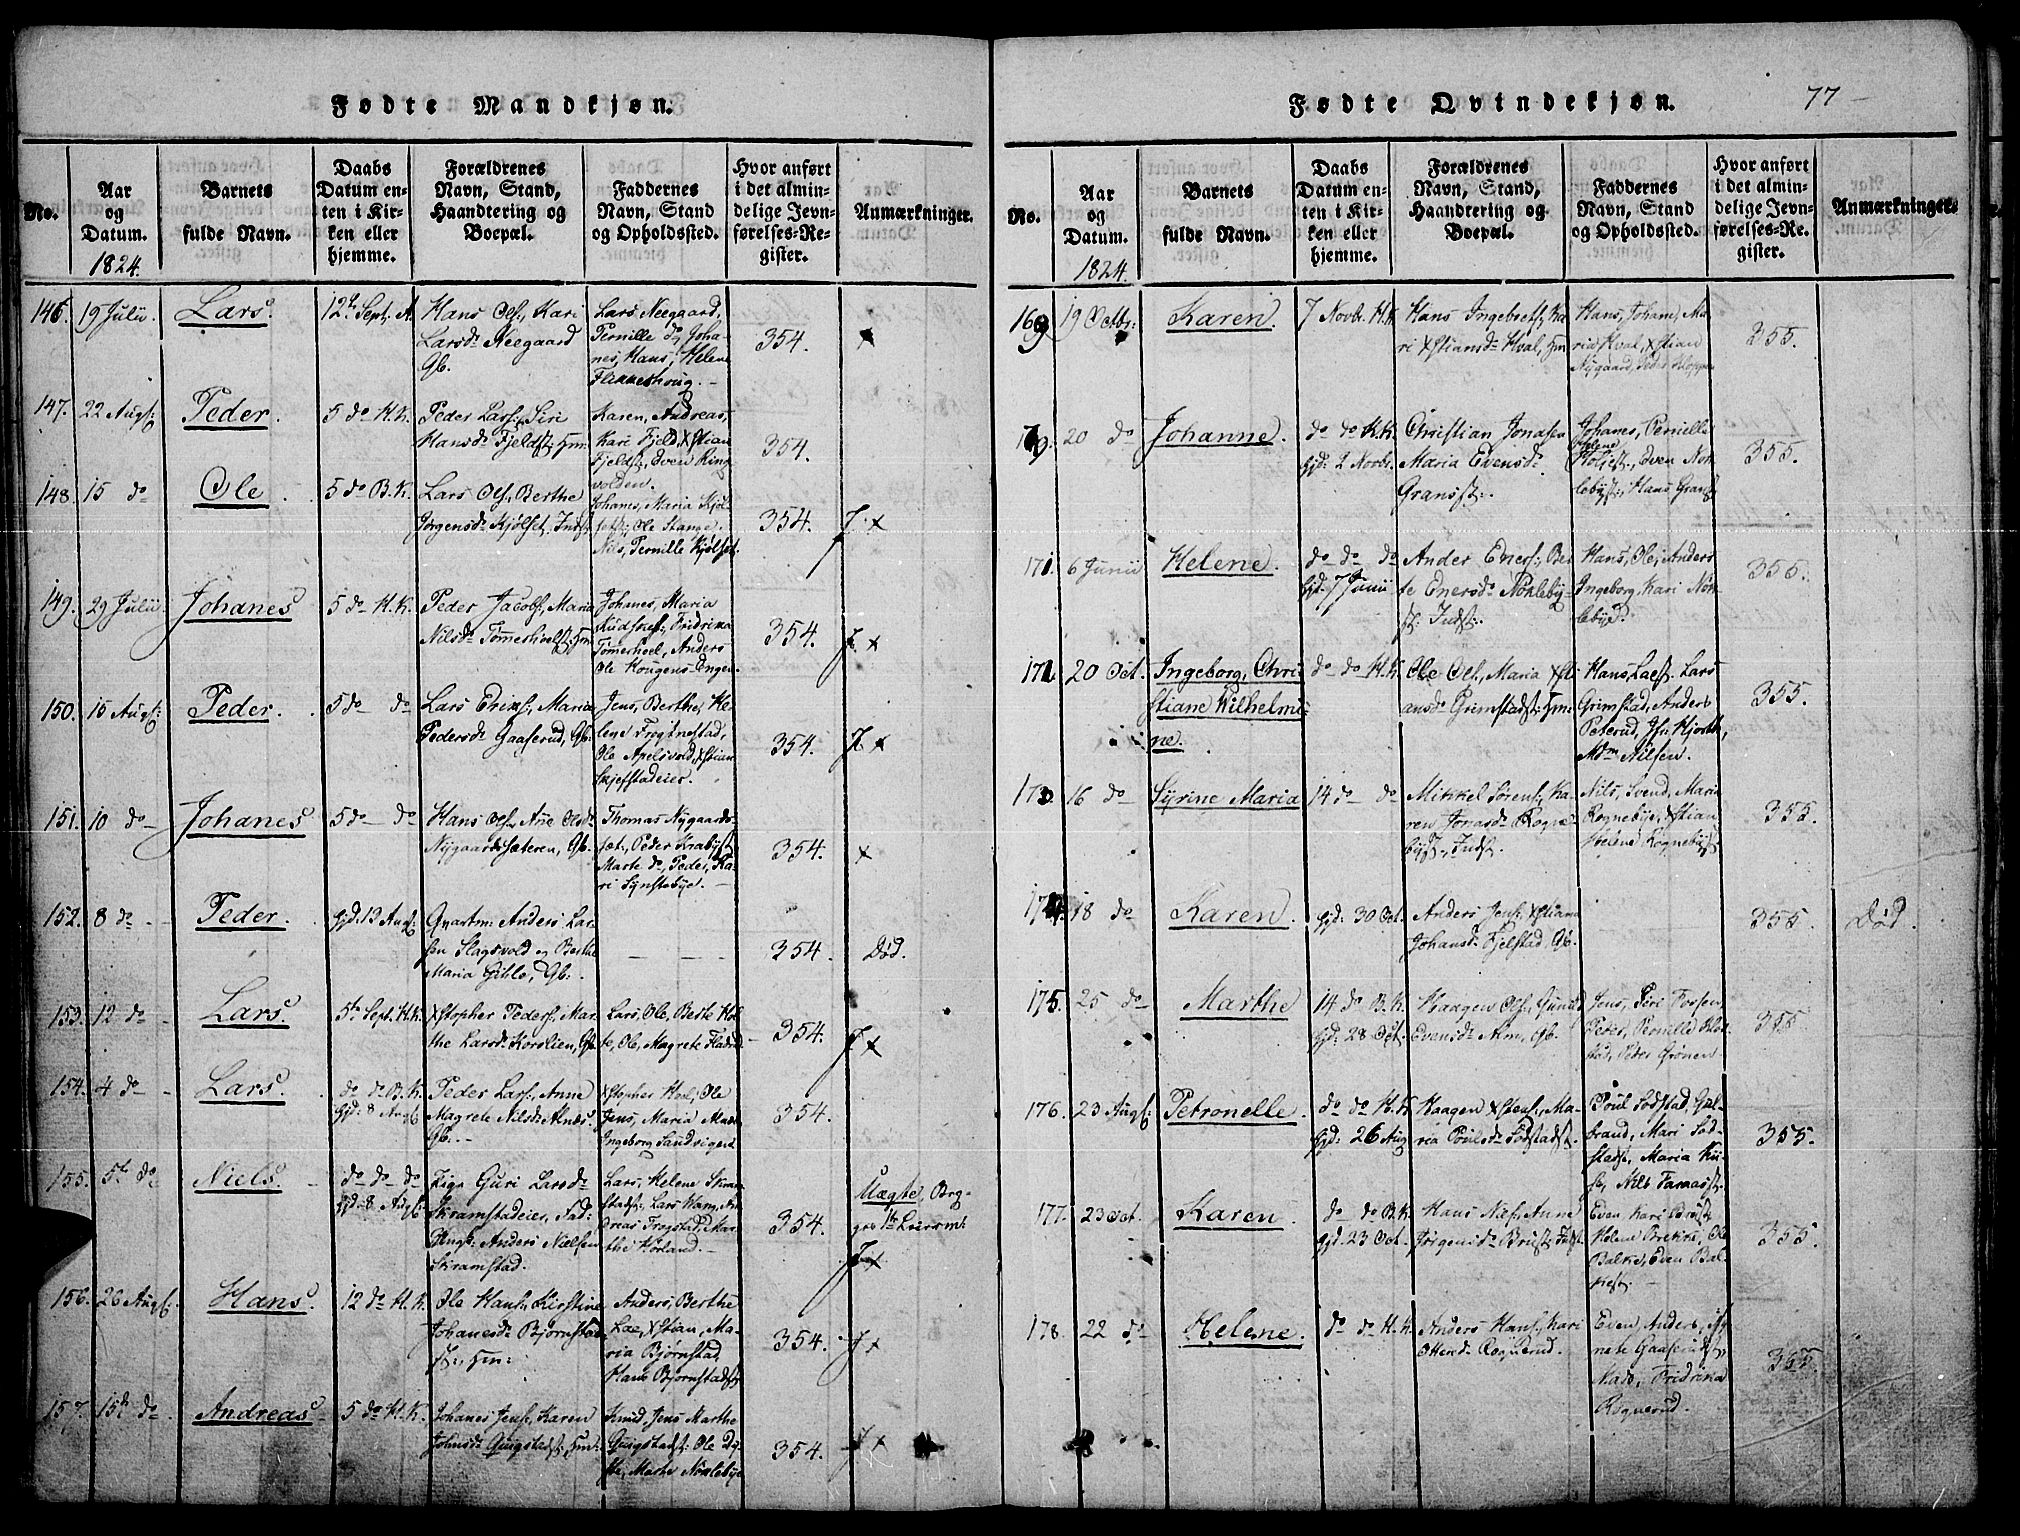 Fødte Mandkjøn.
No.
Aar
og
Datum.
1824.
Barnets
fulde Navn.
Daabs
Datum en-
ten i Kir-
ken eller
hjemme.
Forældrenes
Navn, Stand,
Haandtering og
Boepæl.
Faddernes
Navn, Stand
og Opholdssted.
Hvor anført
i det almin-
delige Jevn-
førelses-Re-
gister.
Anmærkninger.
146. 19 Julii. Lars. 12te Sept. A.
Hans Ols: Kari
Larsdr Neegaard
Gb.
Lars Neegaard,
Pernille do, Joha-
nes, Hans, Helene
Flikkeshoug. -
354. x
147. 22 Augs: Peder. 5 do H.K.
Peder Lars: Siri
Hansdr Fjeldst: Hm.
Karen, Andreas,
Kari Fjeld, Xstian
Fjeldst:, Even Ring
volden.
354.
148. 15 do Ole. 5 do B.K.
Lars Ols: Berthe
Jørgensdr Kjølset, Indst
Johanes, Maria Kjøl-
set:, Ole Stange.
Nils, Pernille Kjølset.
354. J. x
149. 29 Julii Johanes 5 do H.K.
Peder Jacobs:, Maria
Nilsdr Tømmerhoelst: Hm.
Johanes, Maria
Fridrika
Tømmerhoel, Anders
Ole Hougens-Engen.
354. J. x
150. 15 Augs: Peder. 5 do do
Lars Erix: Maria
Pedersdr Gaaserud, Gb.
Jens, Berthe, He-
lene Frøgnestad,
Ole Apelsvold, Xstian
Skjefstadeier.
354. J x
151. 10 do - Johanes 5 do - do
Hans Ols: Ane Olsdr
Nygaardssæteren, Gb.
Thomas Nygaards-
sæt, Peder Krabyst
Marte do, Peder, Ka-
ri Synstebye. -
354. x
152. 8 do - Peder. Hjd: 13 Aug:
Qvartm: Anders Lar-
sen Slagsvold og Berthe
Maria Gihle, Gb:
354. Død.
153. 12 do - Lars. 5te Sept. H.K.
Xstopher Peders:, Mar-
the Larsdr Korslien, Gb.
Lars, Ole, Berte Kol-
te, Ole, Magrete Fladrud -
354. J. x
154. 4 do - Lars. do do B.K.
Hjd: 8 Augs
Peder Lars:, Anne
Magrete Nilsdr Alnæs.
Gb. -
Xstopher Hvl, Ole
Jens, Maria
Ingeborg Sandvigen
354.
155. 5te do Niels. - do do do
Hjd: 8 Augs:
Pige Guri Larsdr
Skramstadeier, Fad:
Ungk: Anders Nielsen
Skramstad.
Lars, Helene Skram
stadst:, Lars Ham, An-
dreas Frogstad, Mar-
the Hørland. -
354.
Uægte,
J x
156. 26 Augs: Hans. 12 do H.K.
Ole Hans:, Kirstine
Johanesdr Bjørnstad-
st:, Hm:
Anders, Berthe
Lae, Xstian, Ma-
ria Bjørnstad,
Hans Bjørnstadst
354. J x
157. 15de do Andreas. 5 do H.K.
Johanes Jens:, Karen
Johnsdr Qvigstadst: Hm:
Knud, Jens Marthe
Qvigstadst: Ole Dy-
ste, Marte Nøklebye
354. J x
Fødte Qvindekjøn. 77 -
No.
Aar
og
Datum.
1824.
Barnets
fulde Navn.
Daabs
Datum en-
ten i Kir-
ken eller
hjemme.
Forældrenes
Navn, Stand,
Haandtering og
Boepæl.
Faddernes
Navn, Stand
og Opholdssted.
Hvor anført
i det almin-
delige Jevn-
førelses-Re-
gister.
Anmærkninger.
169 19 Octbr: Karen. 7 Novbr. H.K
Hans Ingebrets:, Ka-
ri Xstiansdr Hval, Hm
Hans, Johane, Ma-
ria Hval, Xstian
Nygaard, Peder Kloppen
355.
170. 20 do Johanne. do do K.K.
Hjd: 2 Novbr.
Christian Jonasen
Maria Evensdr
Gransst:.
Johanes, Pernille
Helene
Holjest:, Even Nøk-
lebyst:, Hans Gransst
355.
171. 6 Junii Helene. do do do
Hjd: 7 Junii
Ander Eners:, Ber-
te Enersdr Nøkleby-
st: Indst:.
Hans, Ole, Anders
Ingeborg, Kari Nøk-
lebye.
355.
172. 20 Oct. Ingeborg Chri-
stiane Wilhelmi-
ne.
do do H.K.
Ole Ols:, Maria Xsti-
ansdr Grimstadst: Hm.
Hans Laest. Lars
Grimstad, Anders
Peterud, Jfr: Hjorth,
Mdm Nilsen.
355.
173. 16 do - Syrine Maria 14 do - do
Mikkel Sørens:, Ka-
ren Jonasdr Rogne-
byst:, Indst.
Nils, Svend, Maria
Rognebye, Xstian
Helene Rognebyst
355.
174 18 do Karen. Hjd: 30 Oct.
Anders Jens: Xstiana
Johansdr Fjelstad, Gb.
355. Død.
175. 25 do - Marthe 14 do B.K.
Hjd: 28 Oct.
Haagen Ols:, Gunild
Evensdr Alm, Gb.
Jens, Siri Fossen
Peter, Pernille Blil-
stad, Peder Grønen -
355
176. 23 Augs: Petronelle. do do H.K
Hjd: 26 Aug
Haagen Xstens:, Ma-
ria Poulsdr Sodstadst:.
Poul Sodstad, Gul-
brand, Mari Sod-
stadst, Maria Kii-
se, Nils Faraasst.
355.
177. 23 Oct. Karen. do do B.K.
Hjd: 23 Oct.
Hans Niels:, Anne
Jørgensdr Brust: Indst.
Even Kari Brust
Helene Brekke, Ole
Balke, Even Bal-
kest: -
355.
178. 22 do Helene. do do H.K.
Anders Hans:, Kari
Ottersdr Rognerud.
Even, Anders, Ag-
nete Gaaserudst,
Mads, Fridrika
Rognerud.
355